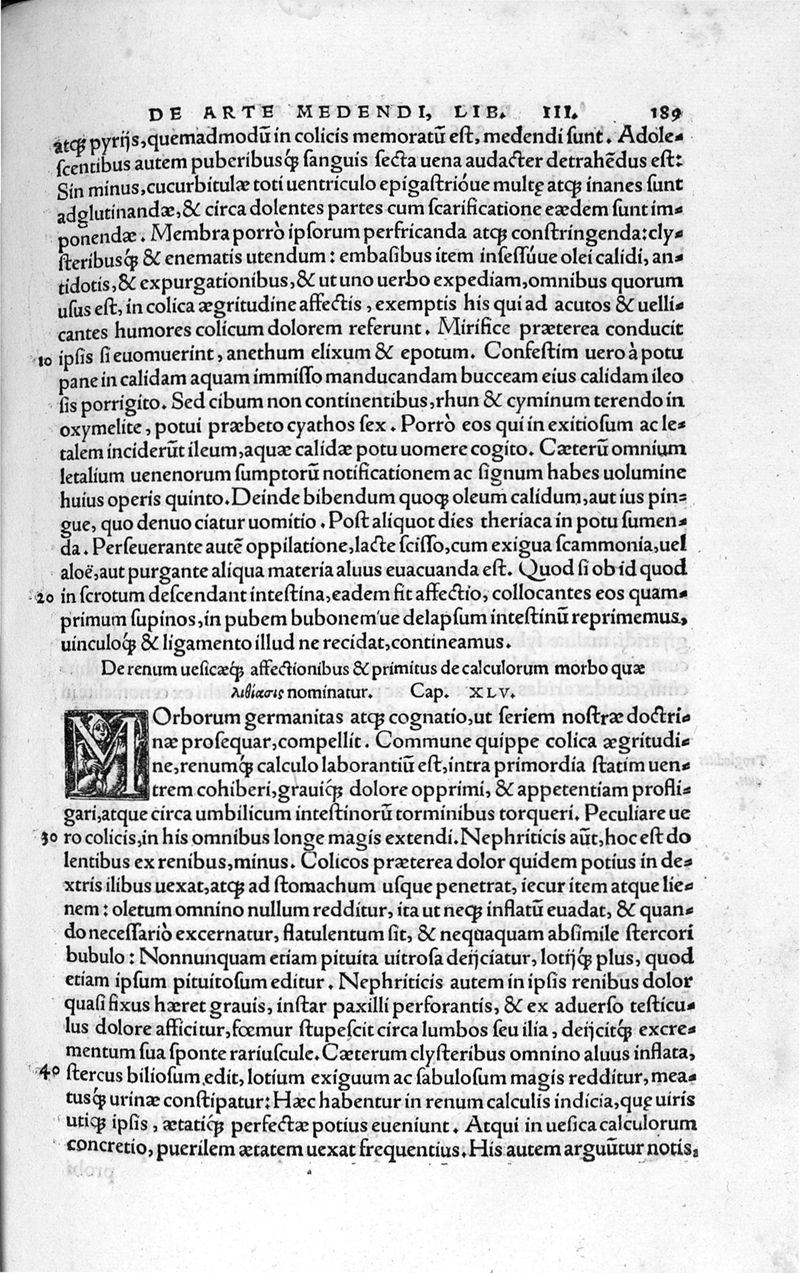 DE ARTE MEDENDI, LIB. III. 189
atq; pyrijs, quemadmodũ in colicis memoratũ est, medendi sunt. Adole-
scentibus autem puberibusq́; sanguis secta uena audacter detrahẽdus est:
Sin minus, cucurbitulæ toti uentriculo epigastrióue multę atq; inanes sunt
adglutinandæ, & circa dolentes partes cum scarificatione eædem sunt im-
ponendæ. Membra porrò ipsorum perfricanda atq; constringenda: cly-
steribusq́; & enematis utendum: embasibus item insessúue olei calidi, an-
tidotis, & expurgationibus, & ut uno uerbo expediam, omnibus quorum
usus est, in colica ægritudine affectis, exemptis his qui ad acutos & uelli-
cantes humores colicum dolorem referunt. Mirifice præterea conducit
10 ipsis si euomuerint, anethum elixum & epotum. Confestim uero à potu
pane in calidam aquam immisso manducandam bucceam eius calidam ileo
sis porrigito. Sed cibum non continentibus, rhun & cyminum terendo in
oxymelite, potui præbeto cyathos sex. Porrò eos qui in exitiosum ac le-
talem inciderũt ileum, aquæ calidæ potu uomere cogito. Cæterũ omnium
letalium uenenorum sumptorũ notificationem ac signum habes uolumine
huius operis quinto. Deinde bibendum quoq; oleum calidum, aut ius pin-
gue, quo denuo ciatur uomitio. Post aliquot dies theriaca in potu sumen-
da. Perseuerante autẽ oppilatione, lacte scisso, cum exigua scammonia, uel
aloë, aut purgante aliqua materia aluus euacuanda est. Quod si ob id quod
20 in scrotum descendant intestina, eadem fit affectio, collocantes eos quam-
primum supinos, in pubem bubonem'ue delapsum intestinũ reprimemus,
uinculoq́; & ligamento illud ne recidat, contineamus.
De renum uesicæq́; affectionibus & primitus de calculorum morbo quæ
λιθίασις nominatur. Cap. XLV.
MOrborum germanitas atq; cognatio, ut seriem nostræ doctri-
næ prosequar, compellit. Commune quippe colica ægritudi-
ne, renumq́; calculo laborantiũ est, intra primordia statim uen-
trem cohiberi, grauiq́; dolore opprimi, & appetentiam profli-
gari, atque circa umbilicum intestinorũ torminibus torqueri. Peculiare ue
30 ro colicis, in his omnibus longe magis extendi. Nephriticis aũt, hoc est do
lentibus ex renibus, minus. Colicos præterea dolor quidem potius in de-
xtris ilibus uexat, atq; ad stomachum usque penetrat, iecur item atque lie-
nem: oletum omnino nullum redditur, ita ut neq; inflatũ euadat, & quan-
do necessariò excernatur, flatulentum sit, & nequaquam absimile stercori
bubulo: Nonnunquam etiam pituita uitrosa deijciatur, lotijq́; plus, quod
etiam ipsum pituitosum editur. Nephriticis autem in ipsis renibus dolor
quasi fixus hæret grauis, instar paxilli perforantis, & ex aduerso testicu-
lus dolore afficitur, fœmur stupescit circa lumbos seu ilia, deijcitq́; excre-
mentum sua sponte rariuscule. Cæterum clysteribus omnino aluus inflata,
40 stercus biliosum edit, lotium exiguum ac sabulosum magis redditur, mea-
tusq́; urinæ constipatur: Hæc habentur in renum calculis indicia, quę uiris
utiq; ipsis, ætatiq́; perfectæ potius eueniunt. Atqui in uesica calculorum
concretio, puerilem ætatem uexat frequentius. His autem arguũtur notis,